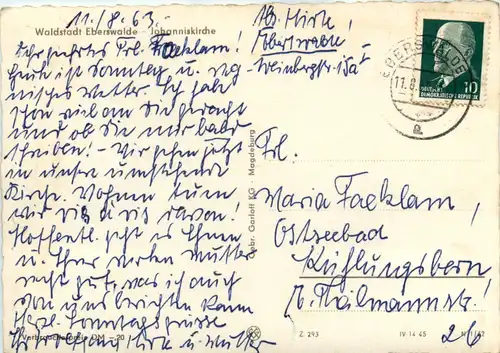 11./8. 63.
Waldstadt Eberswalde – Johanniskirche
Sehr geehrtes Frl. Facklam!
Heute ist Sonntag u. reg-
nerisches Wetter. Ich habe
schon viel an Sie gedacht
und ob Sie mir bald
schreiben! – Wir gehen jetzt
in unsere umstehende
Kirche. Wohnen tun
wir vis à vis davon!
Hoffentl. geht es Ihnen
u. Ihrer Mutter
recht gut, was ich auch
von uns berichten kann
Herzl. Sonntagsgrüsse
Ihr u. Mutter
Verbraucherpreis DM –.20
Gebr. Garloff KG · Magdeburg
Abs. Hirte,
Eberswalde
EBERSWALDE
11.8.
a
10
DEUTSCHE
DEMOKRATISCHE REPUBLIK
Frl.
Maria Facklam,
Ostseebad
Kühlungsborn
Thälmannstr.
Z 293
IV-14-45